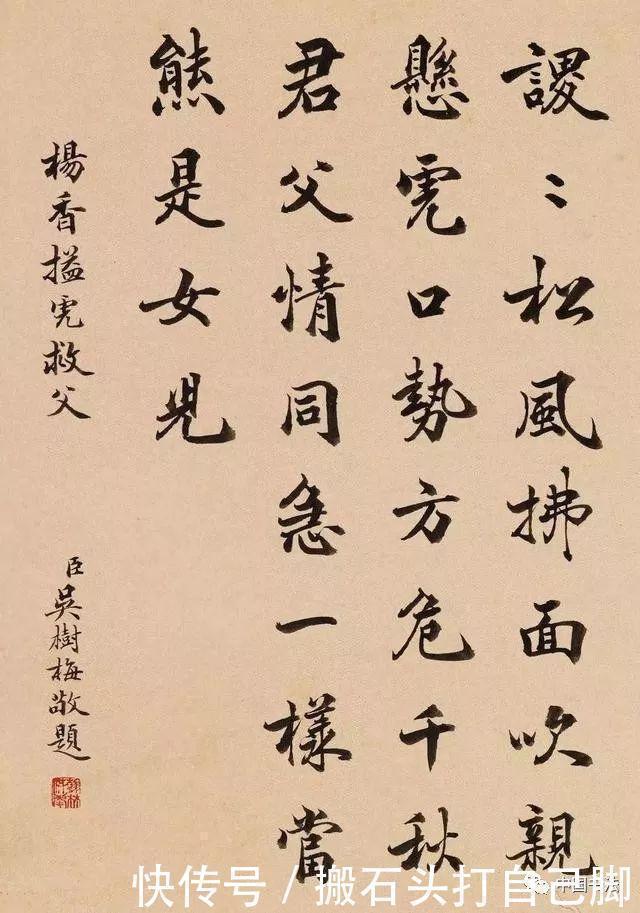 謖〻松風拂面吹親
懸虎口勢方危千秋
君父情同急一樣當
熊是女兒
楊香搤虎救父
臣吳樹梅敬題
快传号/搬石头打自己脚